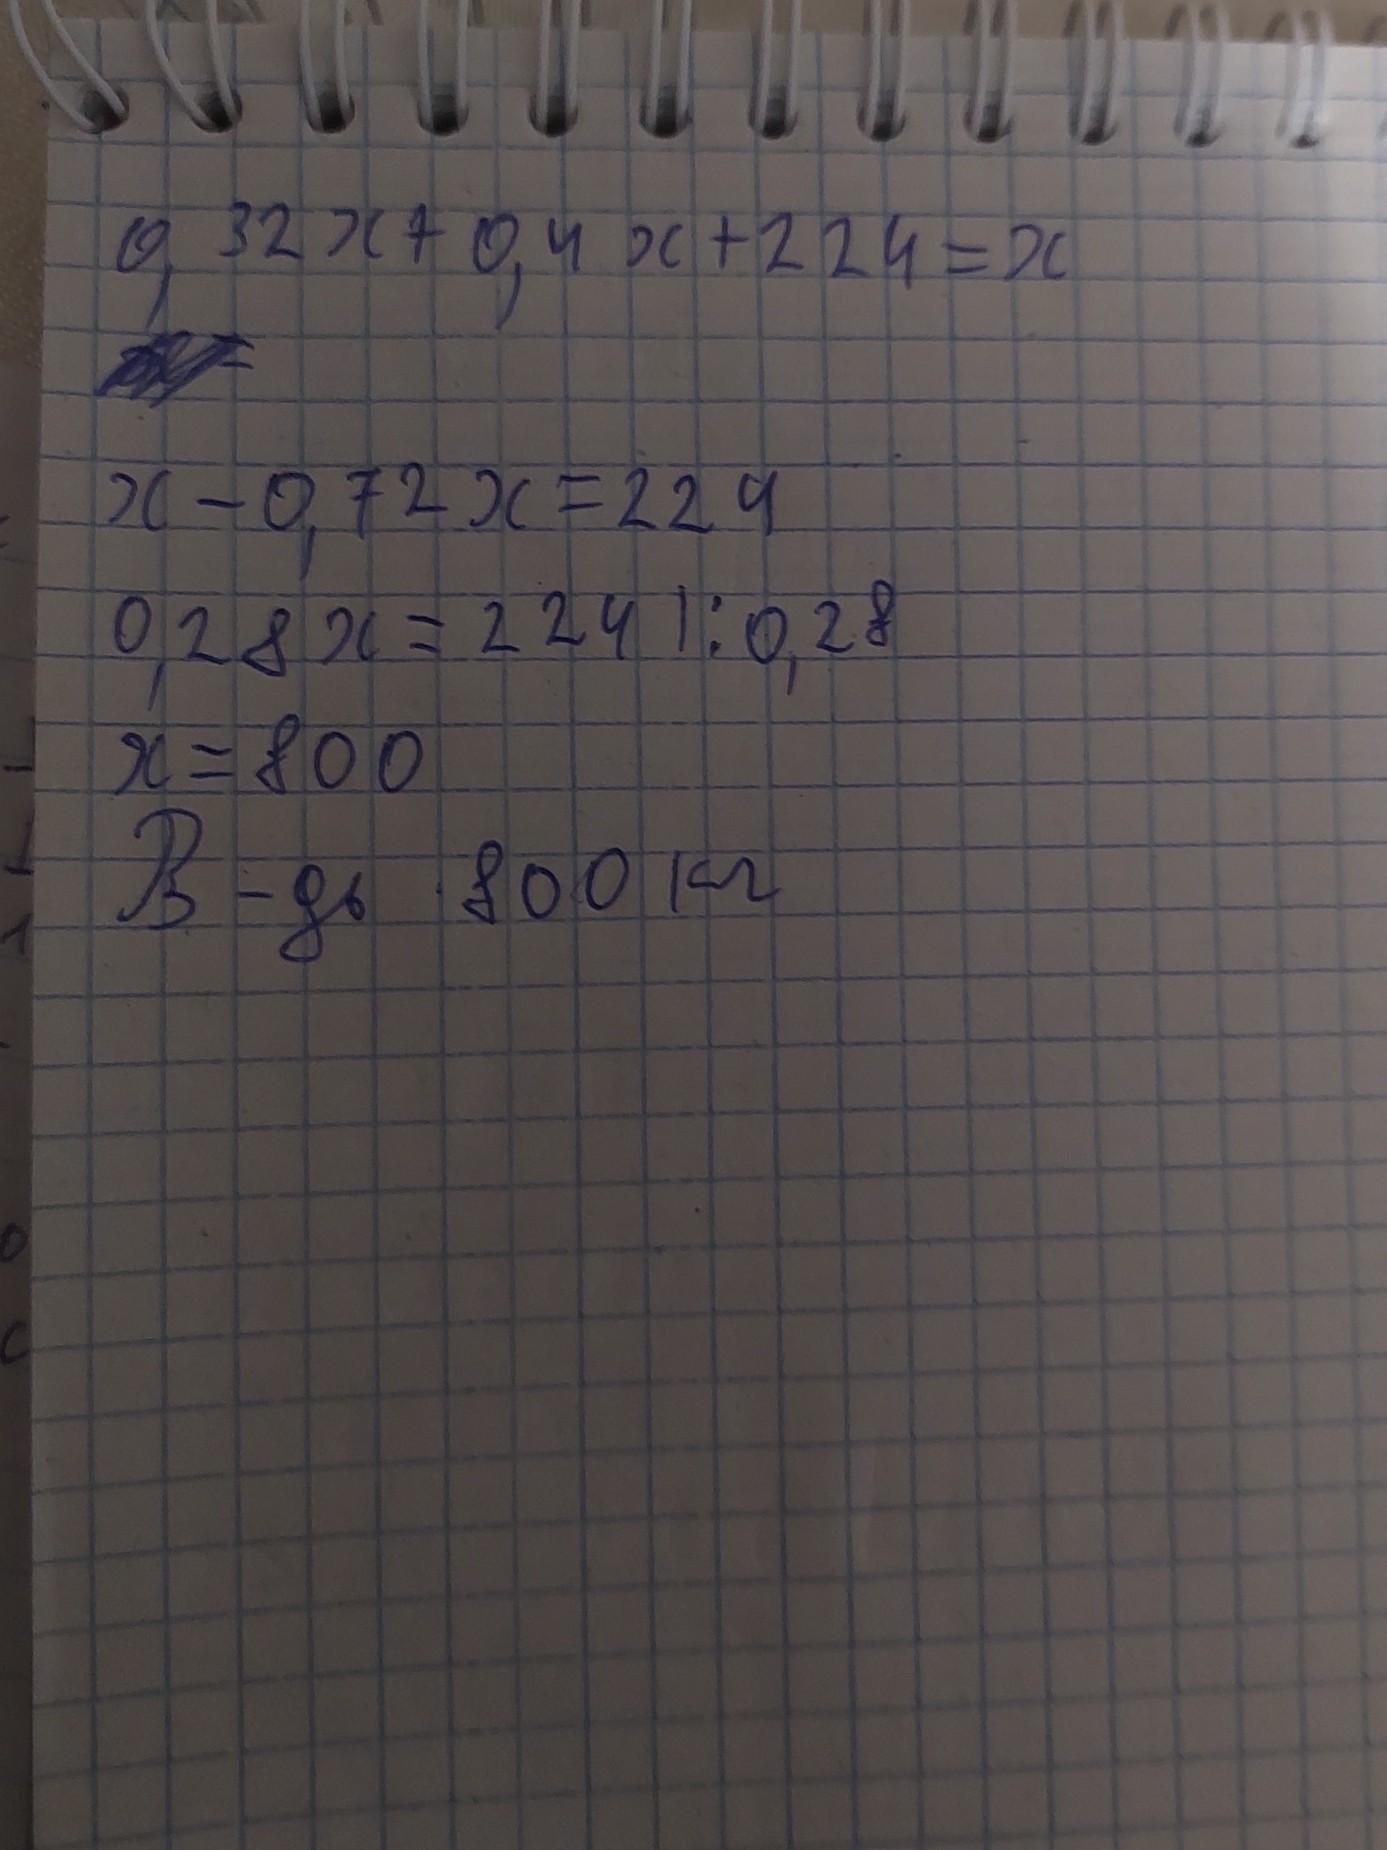 0,32x+0,4x+224=x
x-0,72x=224
0,28x=224 |:0,28
x=800
В-дь 800 кг